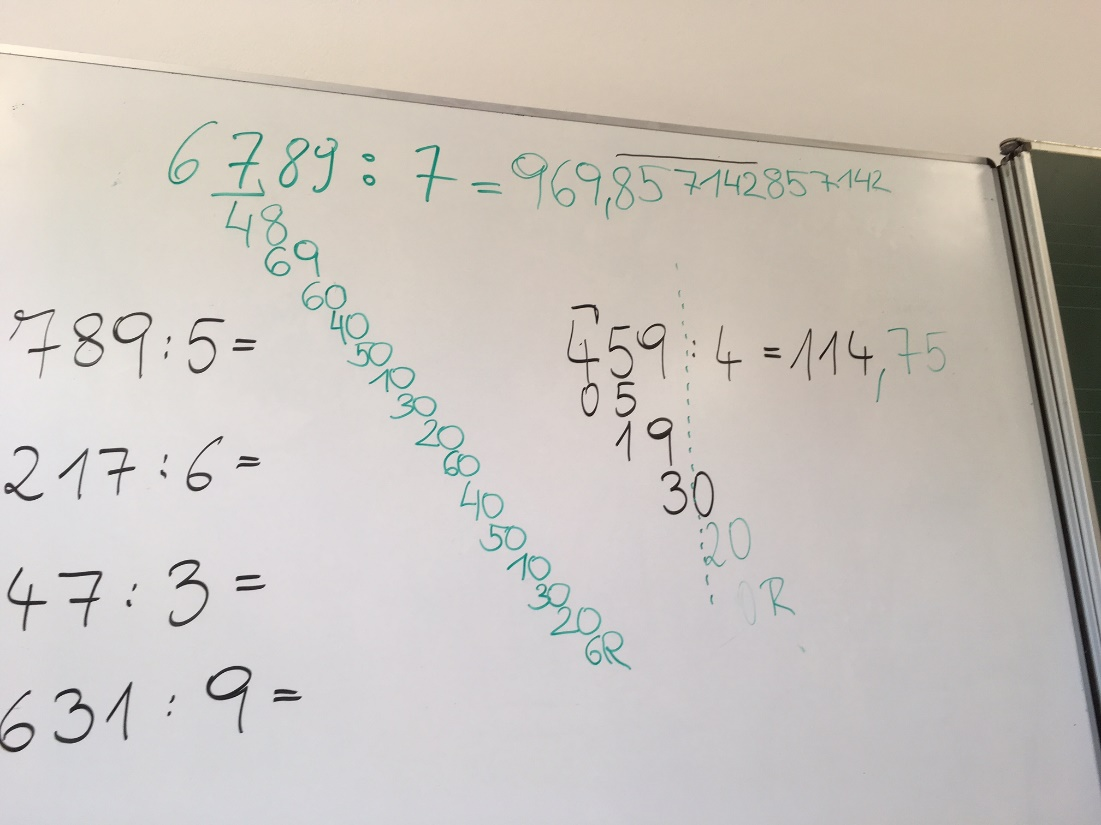 6789 : 7 = 969,857142857142
48
69
60
40
50
10
30
20
60
40
50
10
30
20
6R
789 : 5 =
217 : 6 =
47 : 3 =
631 : 9 =
459 : 4 = 114,75
05
19
30
20
0R